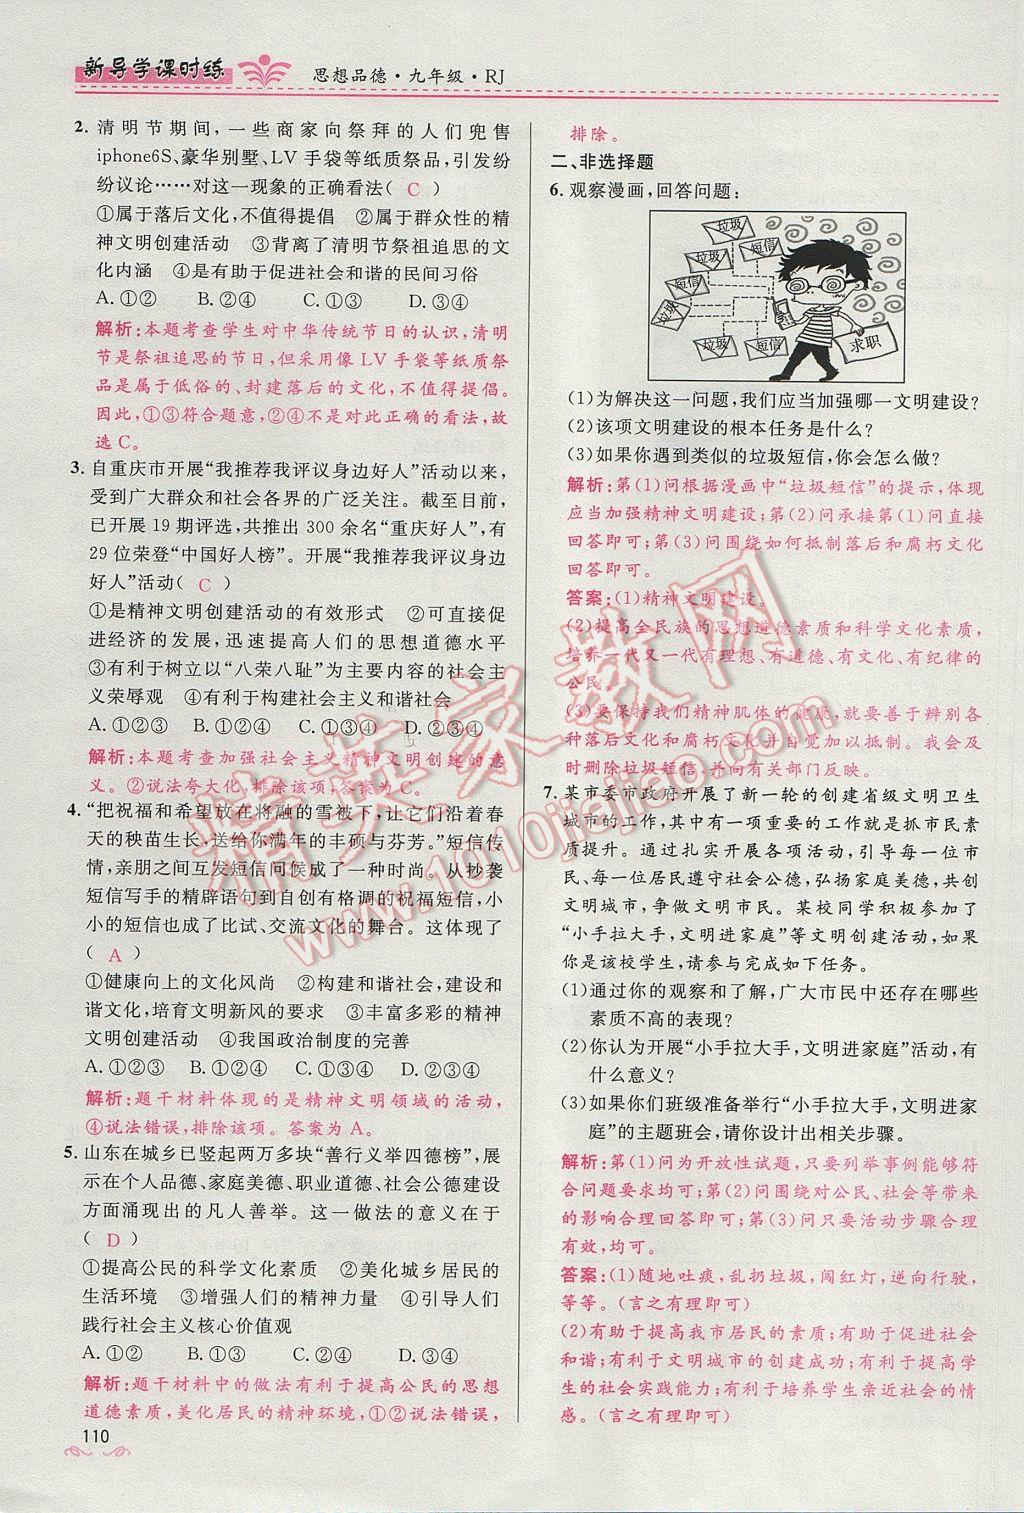 新导学课时练
思想品德·九年级·RJ
2. 清明节期间,一些商家向祭拜的人们兜售
iphone6S、豪华别墅、LV手袋等纸质祭品,引发纷
纷议论……对这一现象的正确看法( C )
①属于落后文化,不值得提倡 ②属于群众性的精
神文明创建活动 ③背离了清明节祭祖追思的文
化内涵 ④是有助于促进社会和谐的民间习俗
A. ①② B. ②④ C. ①③ D. ③④
解析:本题考查学生对中华传统节日的认识,清明
节是祭祖追思的节日,但采用像LV手袋等纸质祭
品是属于低俗的、封建落后的文化,不值得提倡。
因此,①③符合题意,②④不是对此正确的看法,故
选C。
3. 自重庆市开展“我推荐我评议身边好人”活动以来,
受到广大群众和社会各界的广泛关注。截至目前,
已开展19期评选,共推出300余名“重庆好人”,有
29位荣登“中国好人榜”。开展“我推荐我评议身边
好人”活动( C )
①是精神文明创建活动的有效形式 ②可直接促
进经济的发展,迅速提高人们的思想道德水平
③有利于树立以“八荣八耻”为主要内容的社会主
义荣辱观 ④有利于构建社会主义和谐社会
A. ①②③ B. ①②④ C. ①③④ D. ②③④
解析:本题考查加强社会主义精神文明创建的意
义。②说法夸大化,排除该项,答案为C。
4. “把祝福和希望放在将融的雪被下,让它们沿着春
天的秧苗生长,送给你满年的丰硕与芬芳。”短信传
情,亲朋之间互发短信问候成了一种时尚。从抄袭
短信写手的精辟语句到自创有格调的祝福短信,小
小的短信也成了比试、交流文化的舞台。这体现了
( A )
①健康向上的文化风尚 ②构建和谐社会,建设和
谐文化,培育文明新风的要求 ③丰富多彩的精神
文明创建活动 ④我国政治制度的完善
A. ①②③ B. ①②④ C. ①③④ D. ②③④
解析:题干材料体现的是精神文明领域的活动,
④说法错误,排除该项。答案为A。
5. 山东在城乡已竖起两万多块“善行义举四德榜”,展
示在个人品德、家庭美德、职业道德、社会公德建设
方面涌现出的凡人善举。这一做法的意义在于
( D )
①提高公民的科学文化素质 ②美化城乡居民的
生活环境 ③增强人们的精神力量 ④引导人们
践行社会主义核心价值观
A. ①② B. ①③ C. ②④ D. ③④
解析:题干材料中的做法有利于提高公民的思想
道德素质,美化居民的精神环境,①②说法错误,
110
排除。
二、非选择题
6. 观察漫画,回答问题:
垃圾
垃圾 短信
短信
垃圾 短信
求职
(1)为解决这一问题,我们应当加强哪一文明建设?
(2)该项文明建设的根本任务是什么?
(3)如果你遇到类似的垃圾短信,你会怎么做?
解析:第(1)问根据漫画中“垃圾短信”的提示,体现
应当加强精神文明建设;第(2)问承接第(1)问直接
回答即可;第(3)问围绕如何抵制落后和腐朽文化
回答即可。
答案:(1)精神文明建设。
(2)提高全民族的思想道德素质和科学文化素质,
培养一代又一代有理想、有道德、有文化、有纪律的
公民。
(3)要保持我们精神肌体的健康,就要善于辨别各
种落后文化和腐朽文化并自觉加以抵制。我会及
时删除垃圾短信,并向有关部门反映。
7. 某市委市政府开展了新一轮的创建省级文明卫生
城市的工作,其中一项重要的工作就是抓市民素
质提升。通过扎实开展各项活动,引导每一位市
民、每一位居民遵守社会公德,弘扬家庭美德,共创
文明城市,争做文明市民。某校同学积极参加了
“小手拉大手,文明进家庭”等文明创建活动,如果
你是该校学生,请参与完成如下任务。
(1)通过你的观察和了解,广大市民中还存在哪些
素质不高的表现?
(2)你认为开展“小手拉大手,文明进家庭”活动,有
什么意义?
(3)如果你们班级准备举行“小手拉大手,文明进家
庭”的主题班会,请你设计出相关步骤。
解析:第(1)问为开放性试题,只要列举事例能够符
合问题要求均可;第(2)问围绕对公民、社会等带来
的影响合理回答即可;第(3)问只要活动步骤合理
有效,均可。
答案:(1)随地吐痰,乱扔垃圾,闯红灯,逆向行驶,
等等。(言之有理即可)
(2)有助于提高我市居民的素质;有助于促进社会
和谐;有助于文明城市的创建成功;有利于提高学
生的社会实践能力;有利于培养学生亲近社会的情
感。(言之有理即可)
精英家教网
www.1010jiajiao.com